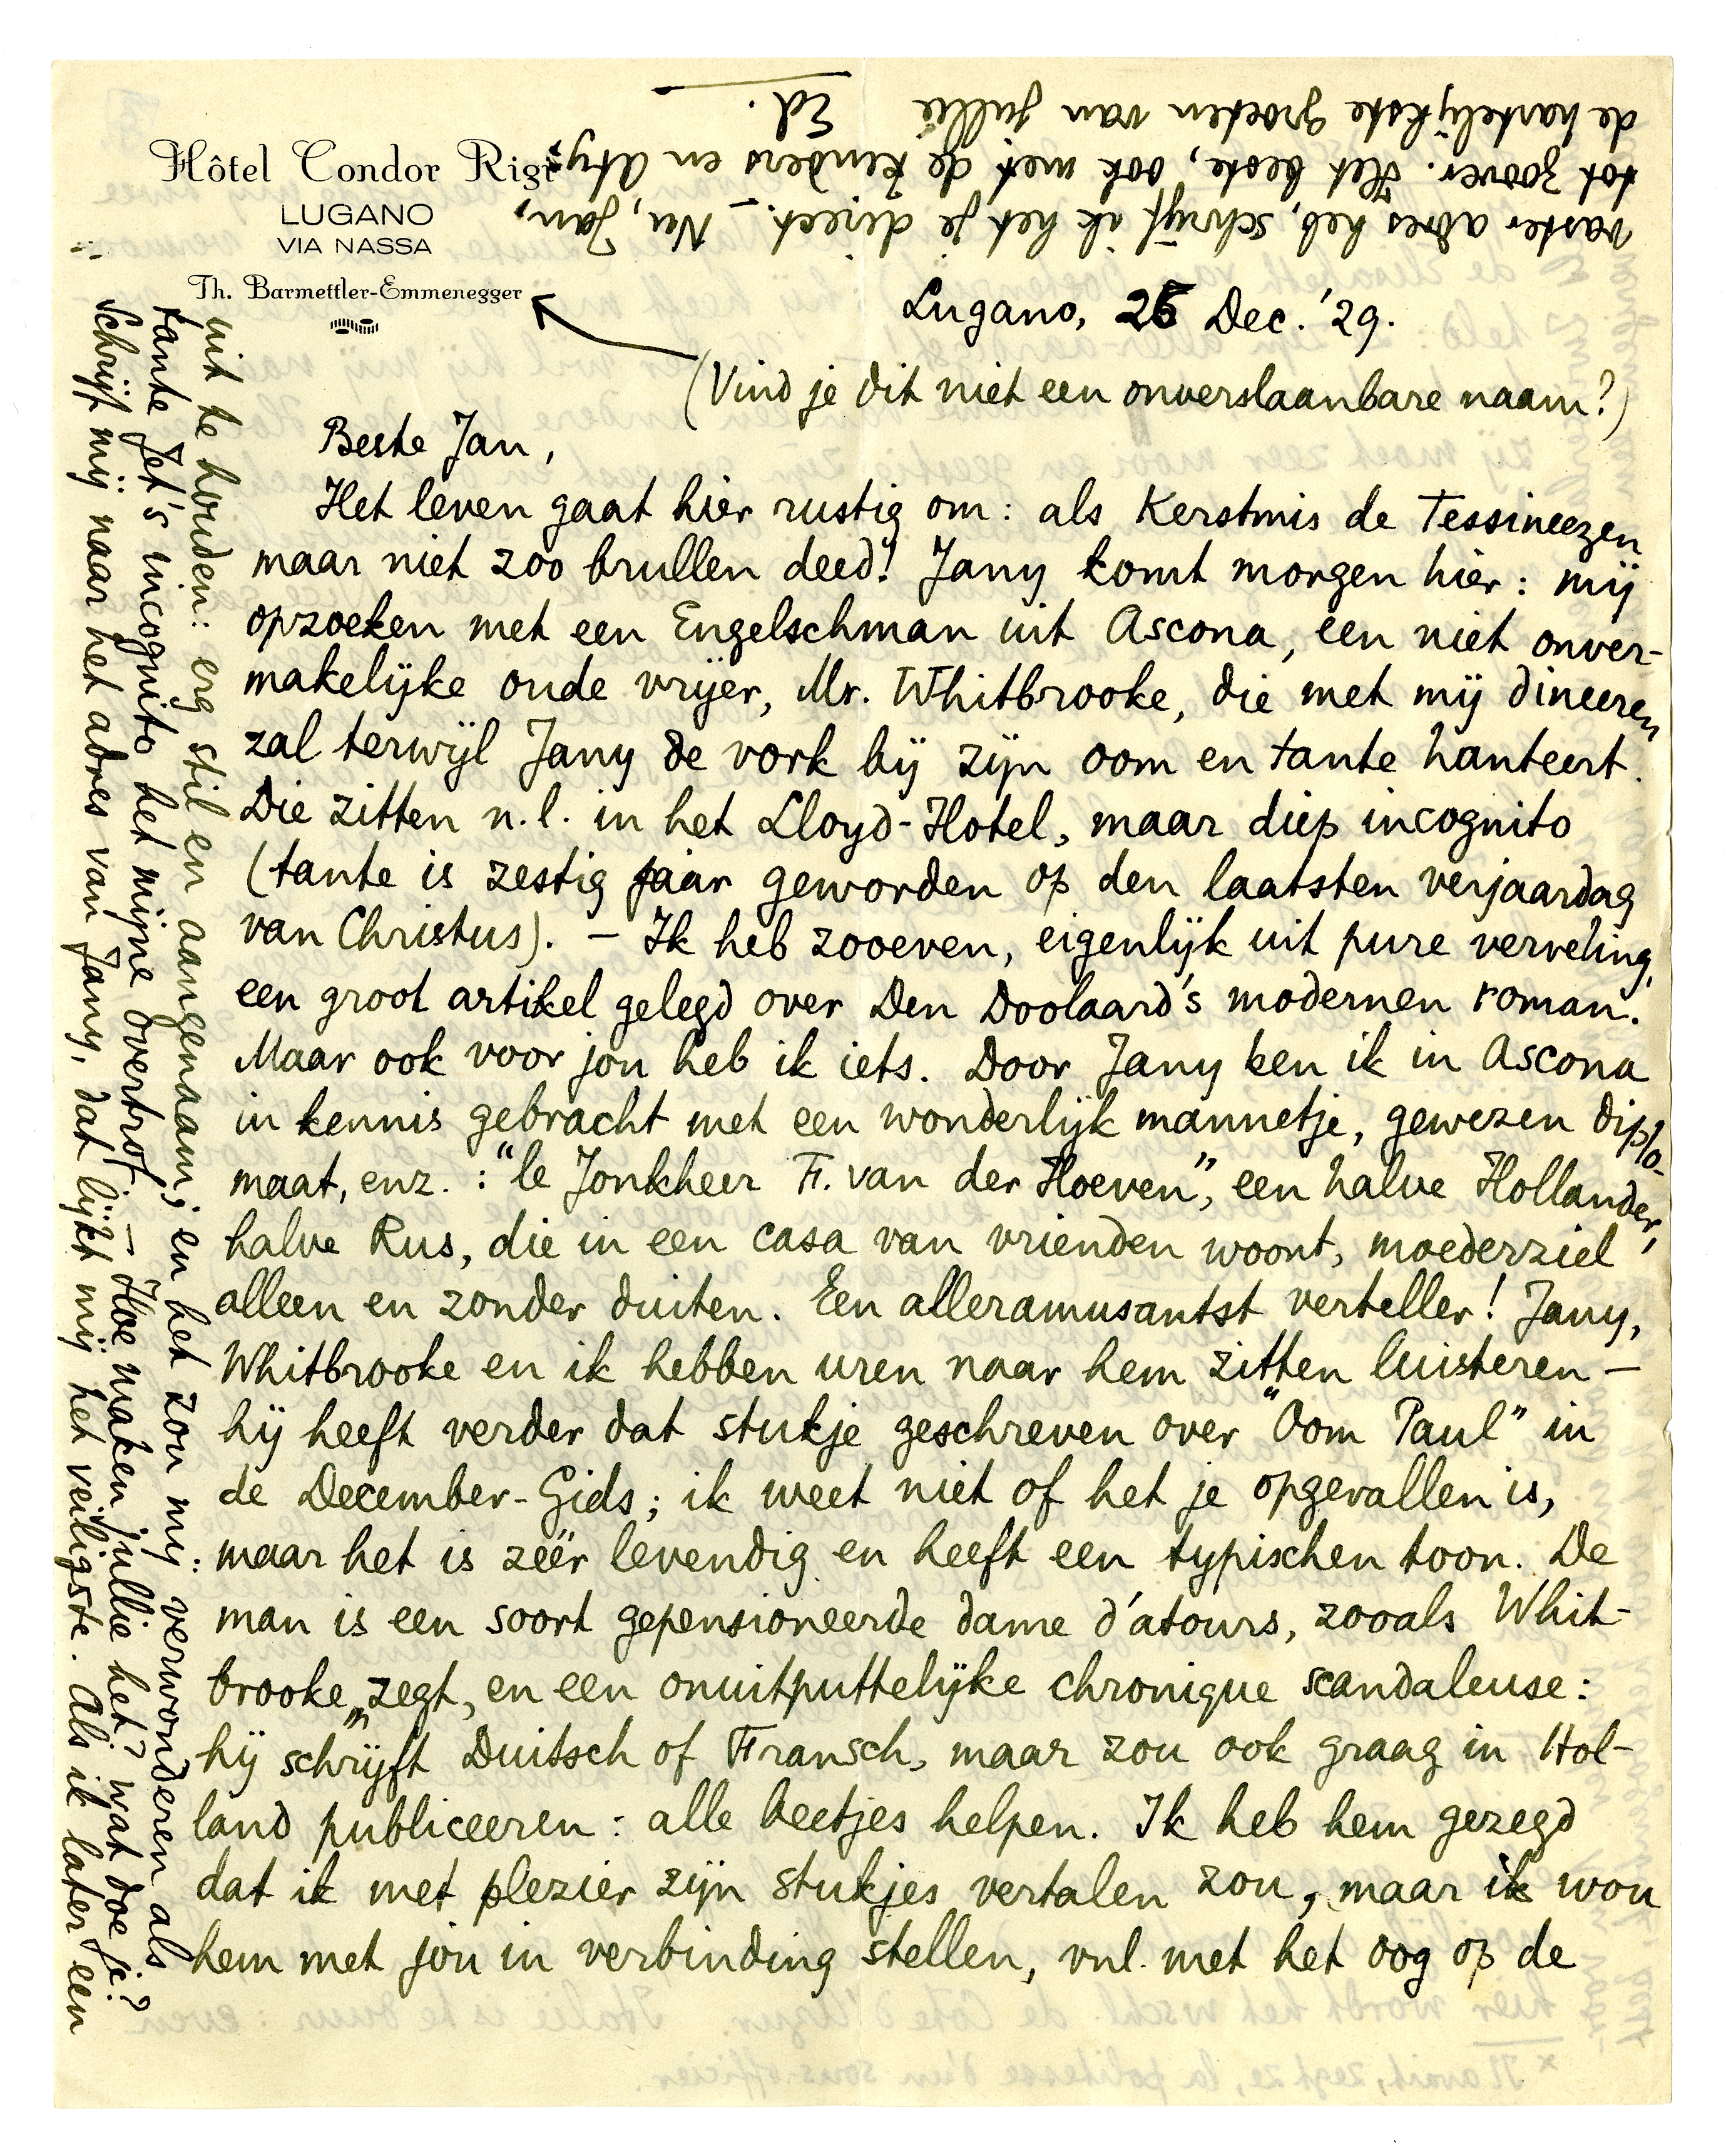 Hôtel Condor Rigi
LUGANO
VIA NASSA
Th. Barmettler-Emmenegger
Lugano, 26 Dec. '29.
(Vind je dit niet een onverslaanbare naam?)
Beste Jan,
Het leven gaat hier rustig om: als Kerstmis de Tessineezen
maar niet zoo brullen deed! Jany komt morgen hier: mij
opzoeken met een Engelschman uit Ascona, een niet onver-
makelijke oude vrijer, Mr. Whitbrooke, die met mij dineeren
zal terwijl Jany de vork bij zijn oom en tante hanteert.
Die zitten n.l. in het Lloyd-Hotel, maar diep incognito
(tante is zestig jaar geworden op den laatsten verjaardag
van Christus). – Ik heb zooeven, eigenlijk uit pure verveling,
een groot artikel gelegd over Den Doolaard's modernen roman.
Maar ook voor jou heb ik iets. Door Jany ben ik in Ascona
in kennis gebracht met een wonderlijk mannetje, gewezen diplo-
maat, enz.: "le Jonkheer F. van der Hoeven", een halve Hollander,
halve Rus, die in een casa van vrienden woont, moederziel
alleen en zonder duiten. Een alleramusantst verteller! Jany,
Whitbrooke en ik hebben uren naar hem zitten luisteren –
hij heeft verder dat stukje geschreven over "Oom Paul" in
de December-Gids; ik weet niet of het je opgevallen is,
maar het is zéér levendig en heeft een typischen toon. De
man is een soort gepensioneerde dame d'atours, zooals Whit-
brooke zegt, en een onuitputtelijke chronique scandaleuse:
hij schrijft in Duitsch of Fransch, maar zou ook graag in Hol-
land publiceeren: alle beetjes helpen. Ik heb hem gezegd
dat ik met plezier zijn stukjes vertalen zou, maar ik wou
hem met jou in verbinding stellen, vnl. met het oog op de
uit te houden: erg stil en aangenaam; en het zou mij verwonderen als
tante Jet's incognito het mijne overtrof. – Hoe maken jullie het? wat doe je?
Schrijf mij naar het adres van Jany, dat lijkt mij het veiligste. Als ik later een
vaster adres heb, schrijf ik het je direct. – Nu, Jan,
tot zoover. Het beste, ook met de kinders en Aty;
de hartelijkste groeten van jullie
Ed.